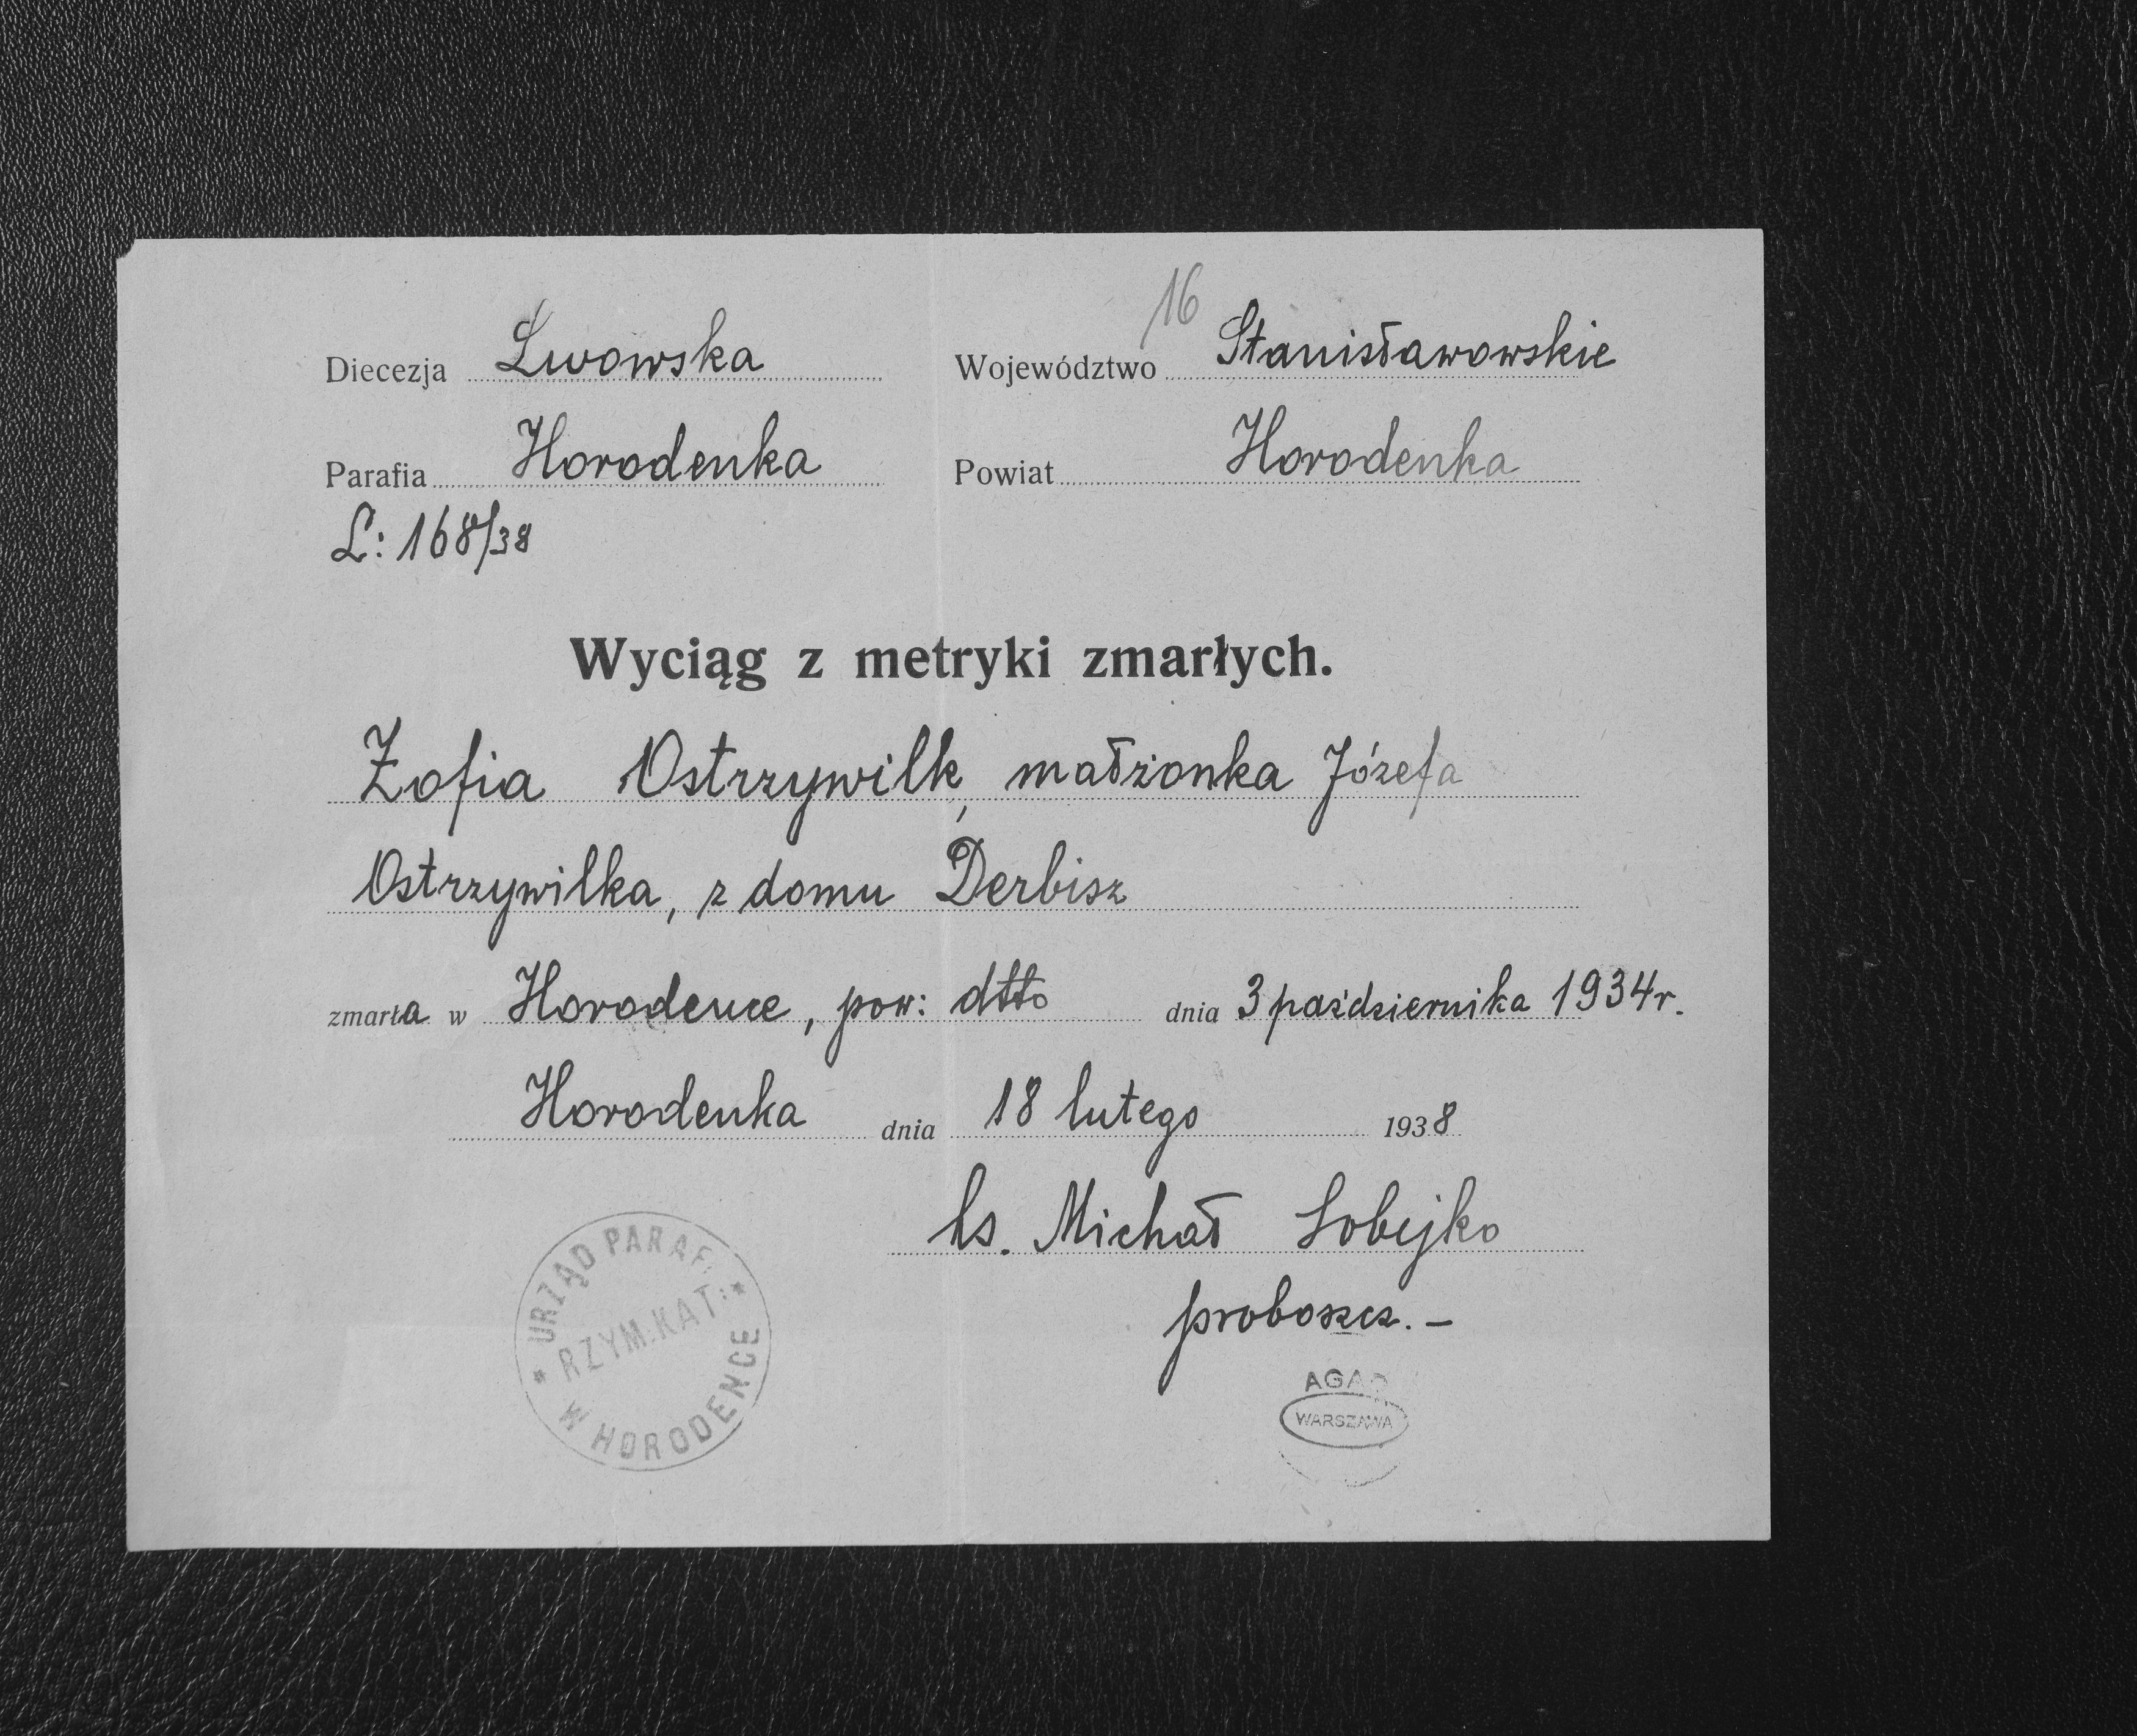 16
Diecezja Lwowska Województwo Stanisławowskie
Parafia Horodenka Powiat Horodenka
L: 168/38
Wyciąg z metryki zmarłych.
Zofia Ostrzywilk, małżonka Józefa
Ostrzywilka, z domu Derbisz
zmarła w Horodence, pow: dtto dnia 3 października 1934 r.
Horodenka dnia 18 lutego 1938
ks. Michał Sobejko
proboszcz. –
* URZĄD PARAF. *
RZYM. KAT:
W HORODENCE
AGAD
WARSZAWA